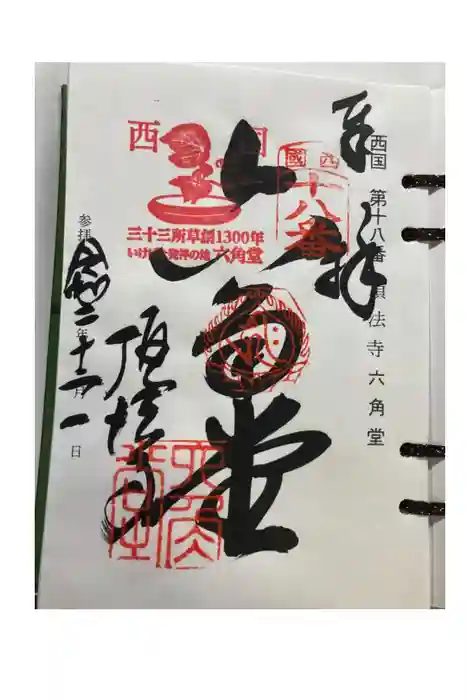 奉拝
西国 第十八番 頂法寺 六角堂
西国
十八番
西国
三十三所草創1300年
いけばな発祥の地 六角堂
六角堂
頂法寺
六角堂
参拝
令和二年十二月一日